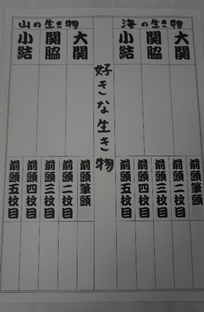 海の生き物
大関
関脇
小結
前頭筆頭
前頭二枚目
前頭三枚目
前頭四枚目
前頭五枚目
好きな生き物
山の生き物
大関
関脇
小結
前頭筆頭
前頭二枚目
前頭三枚目
前頭四枚目
前頭五枚目